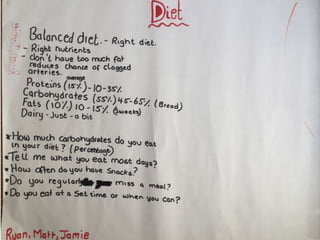 Diet
Balanced diet. - Right diet.
- Right nutrients
- don't have too much fat
reduces chance of clogged
arteries. average
Proteins (15%) - 10-35%
Carbohydrates (55%) 45-65% (Bread)
Fats (10%) 10-15% (Sweets)
Dairy - Just - a bit
* How much carbohydrates do you eat
in your diet? (Percentage)
* Tell me what you eat most days?
* How often do you have snacks?
* Do you regularly miss a meal?
* Do you eat at a Set time or when you can?
Ryan, Matt, Jamie